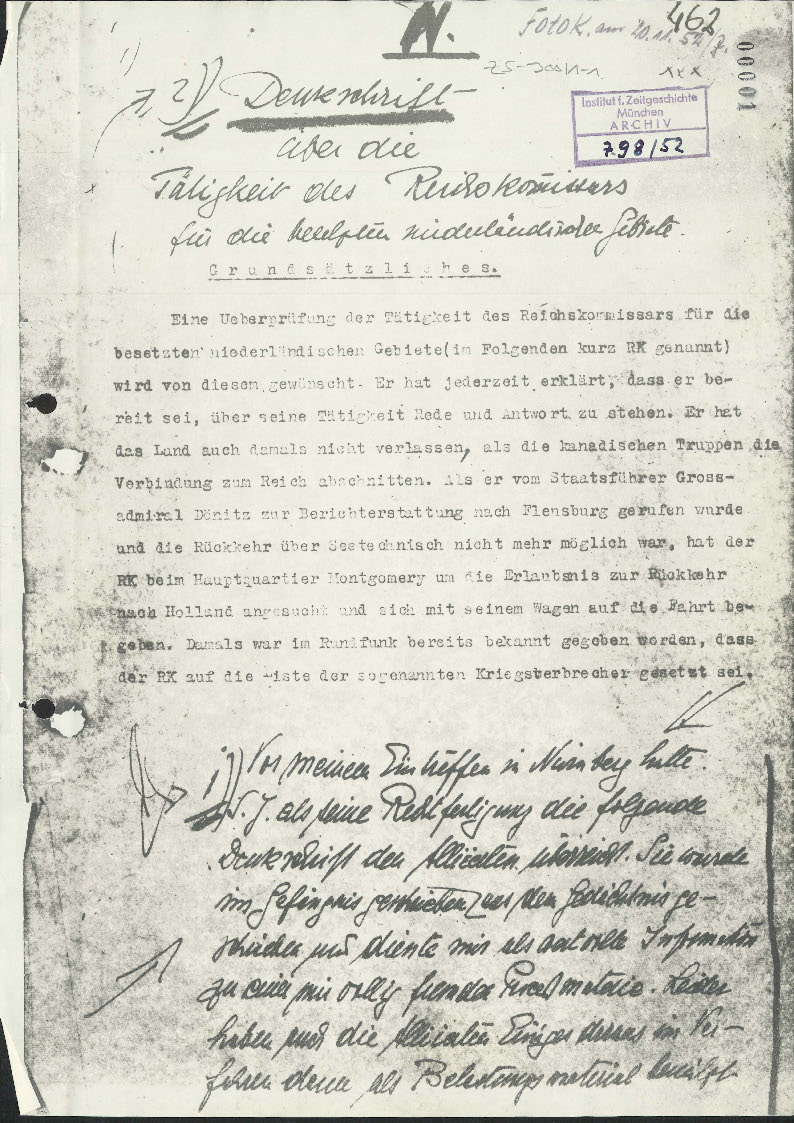 N.
462
Fotok. am 20.11.52/
ZS-300/1-1
xxx
00001
Institut f. Zeitgeschichte
München
ARCHIV
798/52
1)
2)) Denkschrift
über die
Tätigkeit des Reichskommissars
für die besetzten niederländischen Gebiete.
Grundsätzliches.
Eine Ueberprüfung der Tätigkeit des Reichskommissars für die
besetzten niederländischen Gebiete(im Folgenden kurz RK genannt)
wird von diesem gewünscht. Er hat jederzeit erklärt, dass er be-
reit sei, über seine Tätigkeit Rede und Antwort zu stehen. Er hat
das Land auch damals nicht verlassen, als die kanadischen Truppen die
Verbindung zum Reich abschnitten. Als er vom Staatsführer Gross-
admiral Dönitz zur Berichterstattung nach Flensburg gerufen wurde
und die Rückkehr über See technisch nicht mehr möglich war, hat der
RK beim Hauptquartier Montgomery um die Erlaubsnis zur Rückkehr
nach Holland angesucht und sich mit seinem Wagen auf die Fahrt be-
geben. Damals war im Rundfunk bereits bekannt gegeben worden, dass
der RK auf die Liste der sogenannten Kriegsterbrecher gesetzt sei.
1)) Vor meinem Eintreffen in Nürnberg hatte
S. J. als seine Rechtfertigung die folgende
Denkschrift den Alliierten überreicht. Sie wurde
im Gefängnis geschrieben aus dem Gedächtnis ge-
schrieben und diente mir als wertvolle Information
zu einer mir völlig fremden Prozessmaterie. Leider
haben auch die Alliierten Einiges daraus im Ver-
fahren dann als Belastungsmaterial benützt